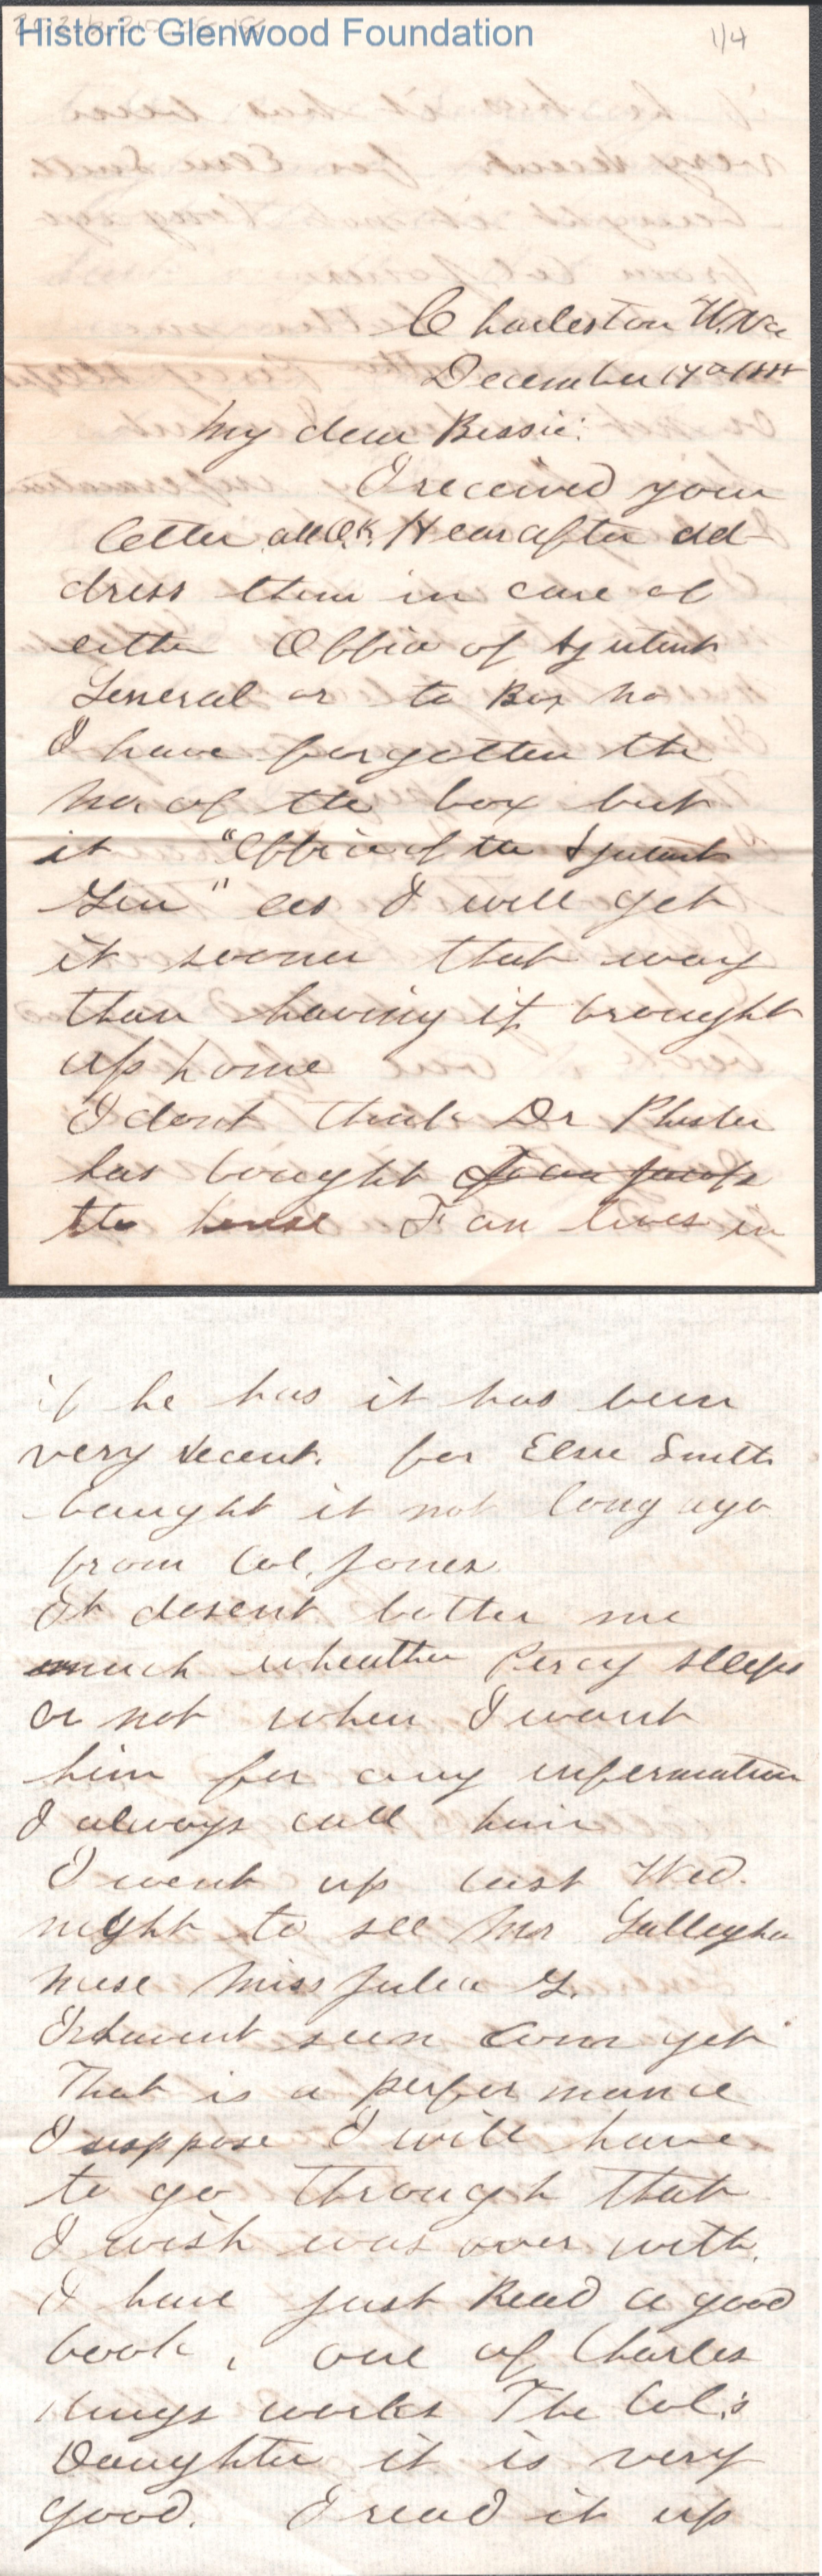 Historic Glenwood Foundation
1/4
Charleston W.Va
December 17th 1888
My dear Bessie:
I received your
letter all O.K. Hearafter ad-
dress them in care of
eithe Office of Ajutent
General or to Box No
I have forgotten the
No. of the box but
it "Office of the Ajutent
Gen" as I will get
it sooner that way
than having it brought
up home
I dont think Dr
has bought
the house Fan lives in
if he has it has been
very recent. for Elsie Smith
baught it not long ago
from Col. Jones
It desent bother me
much wheather Percy sleeps
or not when I want
him for any information
I always call him
I went up last Wed.
night to see Mr Gallegher
niese Miss Julia G.
I havent seen yet
That is a performance
I suppose I will have
to go through that
I wish was over with.
I have just Read a good
book, one of Charles
Kings works The Col.'s
Daughter it is very
good. I read it up